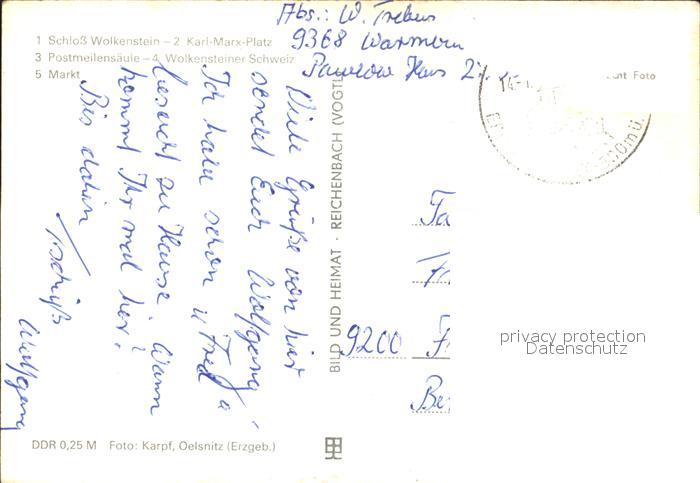 Abs.: W. Trebus
9368 Warmbad
Pawlow Haus 2
1 Schloß Wolkenstein – 2 Karl-Marx-Platz
3 Postmeilensäule – 4 Wolkensteiner Schweiz
5 Markt
Viele Grüße von hier
sendet Euch Wolfgang,
Ich habe schon
besucht zu Hause. Wann
kommt Ihr mal her?
Bis dahin
Tschüß
Wolfgang
BILD UND HEIMAT · REICHENBACH (VOGTL
Foto
9200 F
Be
privacy protection
Datenschutz
DDR 0,25 M Foto: Karpf, Oelsnitz (Erzgeb.)